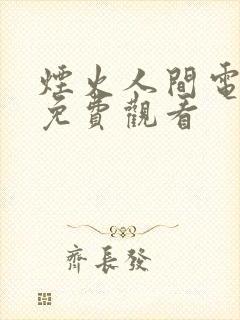 煙火人間電
免費觀看
齊長發